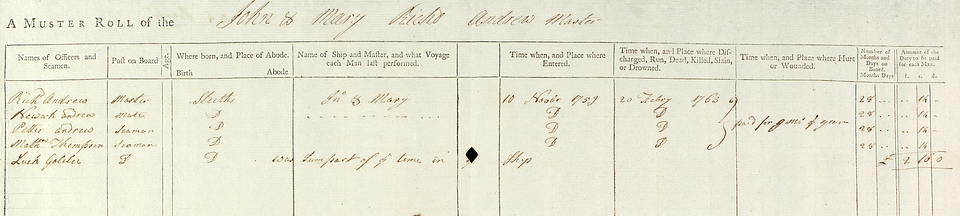 A MUSTER ROLL of the John & Mary Richd Andrew Master
Names of Officers and Seamen. Post on Board. Age. Where born, and Place of Abode. Birth Abode Name of Ship and Master, and what Voyage each Man last performed. Time when, and Place where Entered. Time when, and Place where Discharged, Run, Dead, Killed, Slain, or Drowned. Time when, and Place where Hurt or Wounded. Number of Months and Days on Board. Months Days Amount of the Duty to be paid for each Man. l. s. d.
Richd Andrew Master Jno & Mary 10 1759 20 Febry 1763 28 .. .. 14 ..
Andrew Mate D D D 28 .. .. 14 ..
Peter Andrew Seaman D D D paid for 28 .. .. 14 ..
Mathw Thompson Seaman D D D 28 .. .. 14 ..
Luck D D was part of ye time in Ship £ 2 16 0